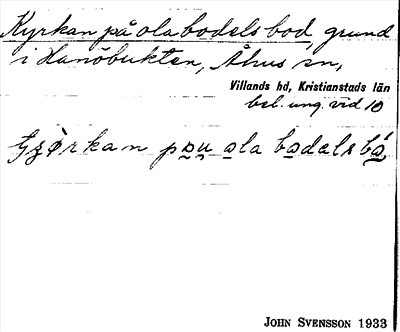 Kyrkan på olabodelsbod, grund
i Hanöbukten, Åhus sn,
Villands hd, Kristianstads län
bel. ung. vid 10
pạu ola bodels
JOHN SVENSSON 1933